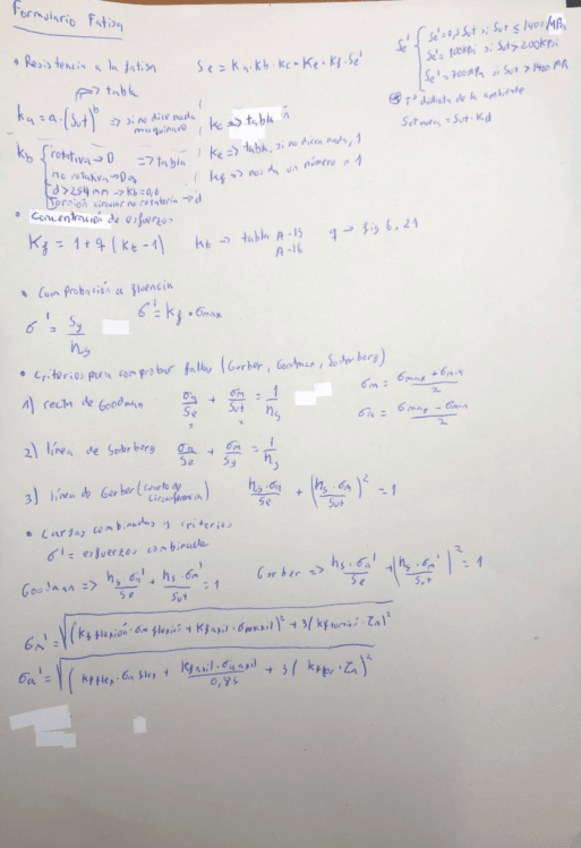 Formulario Fatiga
• Resistencia a la fatiga Se = Ka·Kb·Kc·Ke·Kf·Se'
Se' { Se' = 0,5 Sut si Sut ≤ 1400 MPa
Se' = 100kpsi si Sut > 200kpsi
Se' = 700MPa si Sut > 1400 MPa
Tº distinta de la ambiente
Sut nueva = Sut·Kd
→ tabla
Ka = a·(Sut)^b => si no dice nada maquinado
Kc => tabla
Kb { rotativa → D => tabla
no rotativa → D
d > 254 mm → Kb = 0,6
Torsión circular no rotatoria → d
Ke => tabla, si no dice nada, 1
Kf => nos da un número o 1
• Concentración de esfuerzos
Kf = 1 + q (Kt - 1) Kt → tabla A-15 A-16 q → fig 6.21
• Comprobación a fluencia
σ' = Sy / ns σ' = Kf · σmax
• Criterios para comprobar fallas (Gerber, Goodman, Soderberg)
1) recta de Goodman σa/Se + σm/Sut = 1/ns
σm = (σmax + σmin)/2
σa = (σmax - σmin)/2
2) línea de Soderberg σa/Se + σm/Sy = 1/ns
3) línea de Gerber (cuarto de circunferencia) ns·σa/Se + (ns·σm/Sut)² = 1
• Cargas combinadas y criterios
σ' = esfuerzos combinada
Goodman => ns·σa'/Se + ns·σm'/Sut = 1 Gerber => ns·σa'/Se + (ns·σm'/Sut)² = 1
σm' = √((Kf flexión·σm flexión + Kf axil·σm axil)² + 3(Kf torsión·τm)²
σa' = √((Kf flex·σa flex + Kf axil·σa axil/0,85 + 3(Kf tor·τa)²